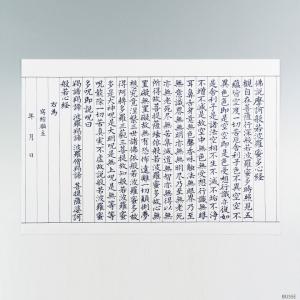 佛説摩訶般若波羅蜜多心経
観自在菩薩行深般若波羅蜜多時照見五
蘊皆空度一切苦厄舎利子色不異空空不
異色色即是空空即是色受想行識亦復如
是舎利子是諸法空相不生不滅不垢不浄
不増不減是故空中無色無受想行識無眼
耳鼻舌身意無色聲香味触法無眼界乃至
無意識界無無明亦無無明尽乃至無老死
亦無老死尽無苦集滅道無智亦無得以無
所得故菩提薩埵依般若波羅蜜多故心無
罣礙無罣礙故無有恐怖遠離一切顛倒夢
想究竟涅槃三世諸佛依般若波羅蜜多故
得阿耨多羅三藐三菩提故知般若波羅蜜
多是大神呪是大明呪是無上呪是無等等
呪能除一切苦真実不虚故説般若波羅蜜
多呪即説呪曰
羯諦羯諦 波羅羯諦 波羅僧羯諦 菩提薩婆訶
般若心経
右為
年 月 日